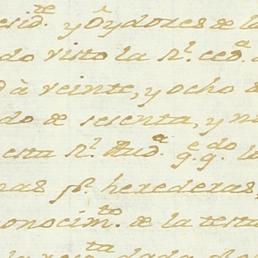 esid.te y Oydores de la
do visto la R.l ced.a
d à veinte, y ocho d
do de sesenta, y n
esta R.l Aud.a q.e q.do
nas p.r herederas,
onocim.to de la testa